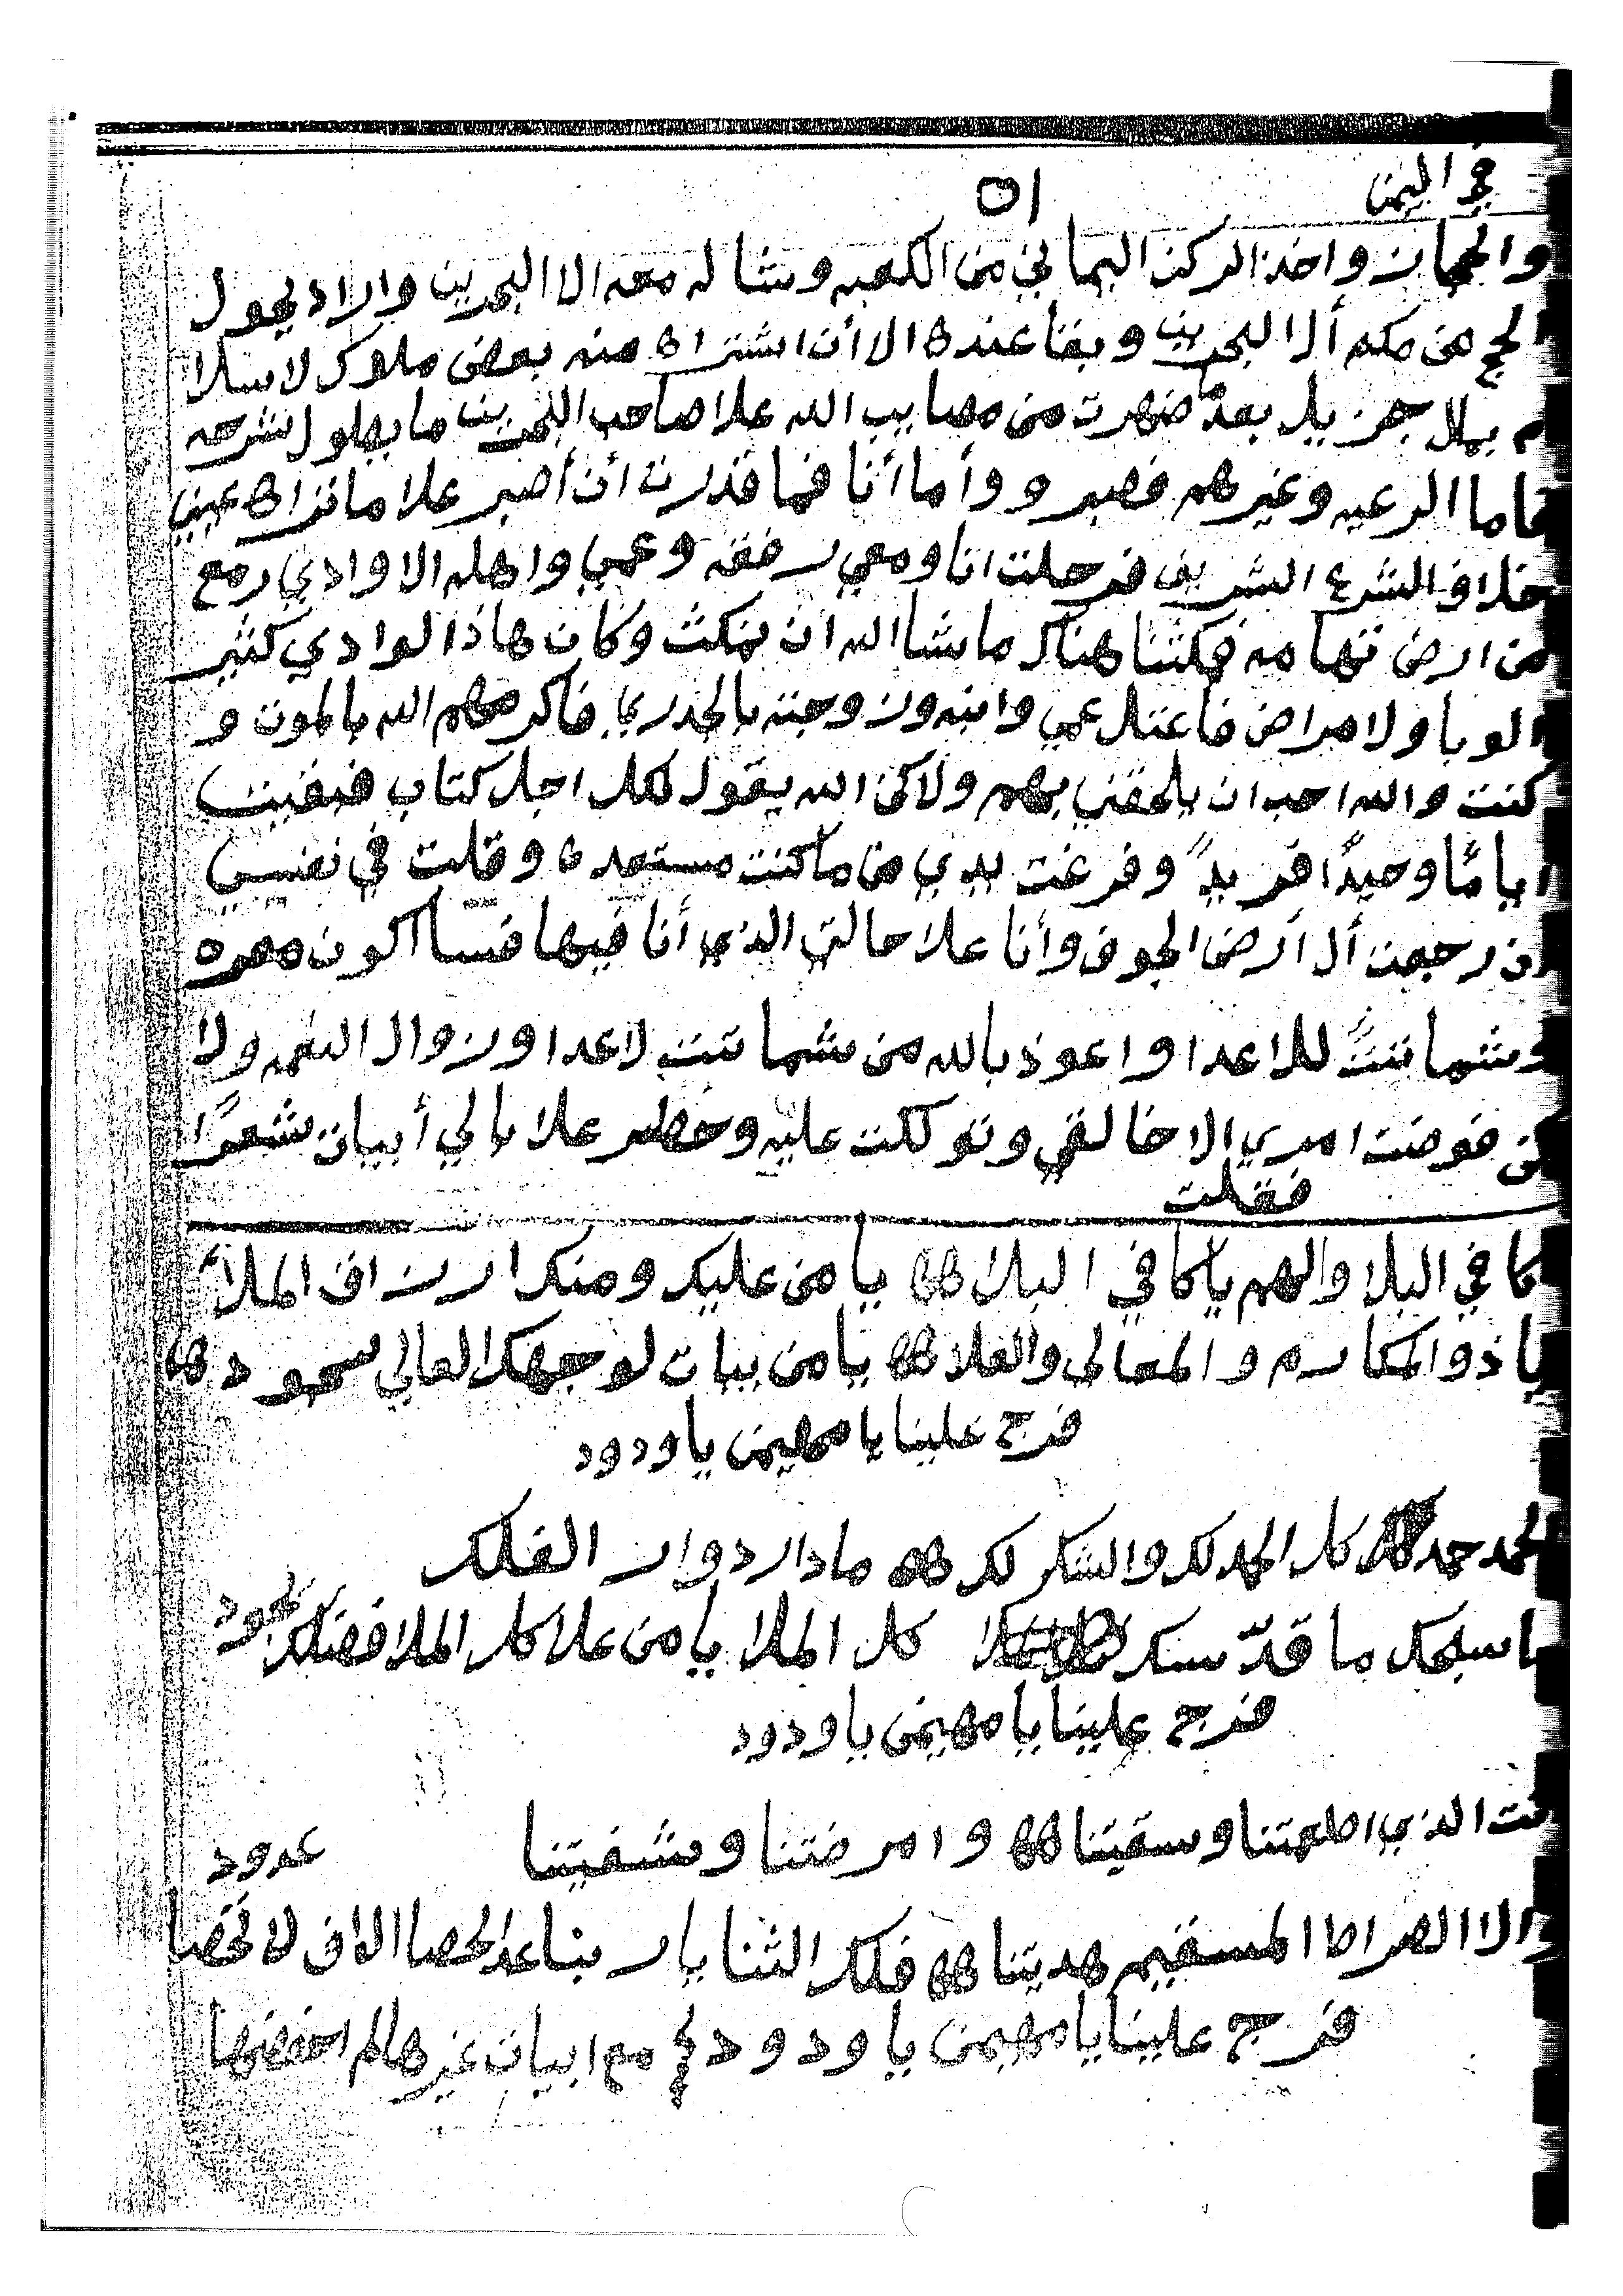 في اليمن
٥١
والحجاز واخذ الركن اليماني من الكعبه وشاله معه الا البحرين واراد يحول
الحج من مكه ألا البحرين وبقا عنده الا أن اشتراه منه بعض ملوك لاسلا
م بملا جزيل بعدّ ضهرت من مصايب الله علا صاحب البحرين ما يطول شرحه
فاما الرعيه وغيرهم فصبرو وأما أنا فما قدرت أن أصبر علا ما تراه عيني
خلاف الشرع الشريف فرحلت انا ومعي رفقه وعمي واهله الا وادي رمع
من ارض تهامه فمكثنا هناك ماشا الله ان نمكث وكان هاذا لوادي كثير
الوبا ولامراض فاعتل عمي وابنه وزوجته بالجدري فاكرمهم الله بالموت و
كنت والله احب ان يلحقني بهم ولاكن الله يقول لكل اجل كتاب فبقيت
اياماً وحيداً فريداً وفرغت يدي من ما كنت مستعده وقلت في نفسي
ان رجعت ألا أرض الجوف وأنا علا حالتي الذي أنا فيها فسا اكون معره
وشماتتً للاعدا واعوذ بالله من شماتت لاعدا وزوال النعمه ولا
كن فوضت امري الا خالقي وتوكلت عليه وخطر علا بالي أبيات شعرًا
فقلت
كافي البلا والهم ياكافي البلا يا من عليك ومنك ارزاق الملا
ياذو المكارم والمعالي والعلا يا من يبات لوجهك العالي سجود
فرج علينا يا مهيمن يا ودود
الحمد حمدك كل الحمد لك والشكر لك مادار دوار الفلك
ما سبحك ما قدّسك كل الملا يا من علا كل الملا فضلك يجود
فرج علينا يا مهيمن يا ودود
انت الذي اطعمتنا وسقيتنا وامرضتنا وشفيتنا
والا الصراط المسقيم هديتنا فلك الثنا يا ربنا عد الحصا الاف لا تحصا عدود
فرج علينا يا مهيمن يا ودود مع ابيات غيرها لم احفضها